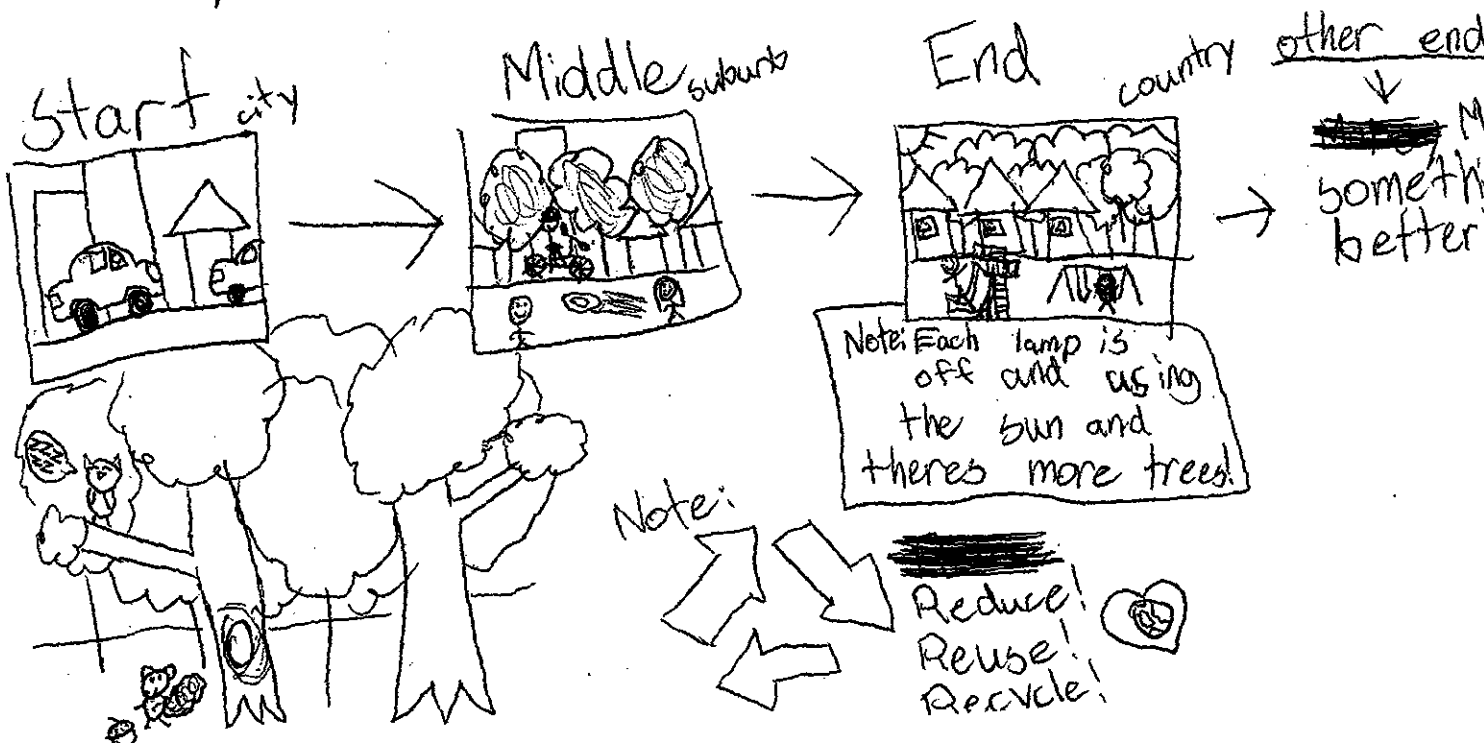 Start city
Middle suburb
End country
other end
something
better
Note: Each lamp is
off and using
the sun and
theres more trees!
Note:
Reduce!
Reuse!
Recycle!